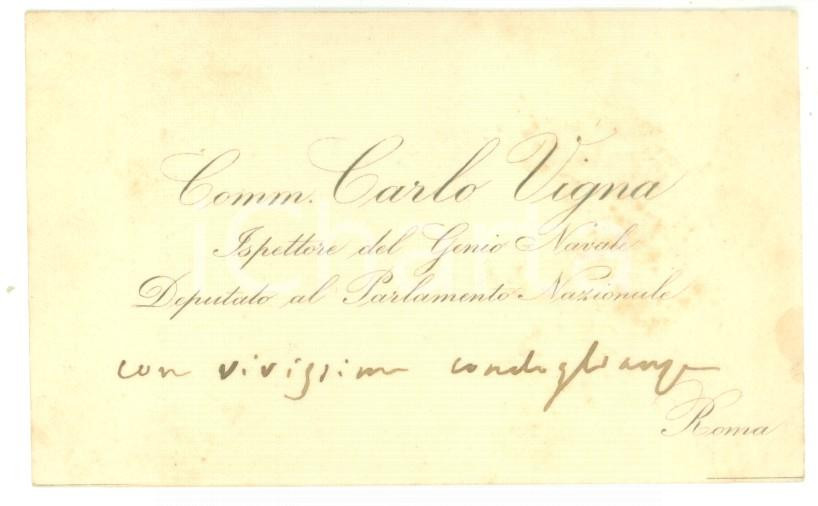 Comm. Carlo Vigna
Ispettore del Genio Navale
Deputato al Parlamento Nazionale
con vivissime condoglianze
Roma